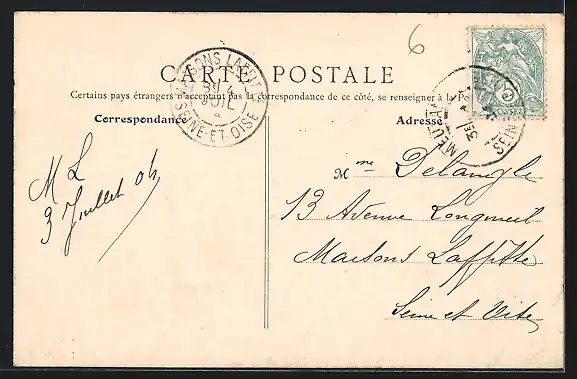 6
CARTE POSTALE
Certains pays étrangers n'acceptant pas la correspondance de ce côté, se renseigner à la Po
Correspondance
Adresse
MAISONS LAFFITTE
JUIL
SEINE-ET-OISE
M L
3 Juillet 04
Mme Delangle
13 Avenue Longueil
Maisons Laffitte
Seine et Oise